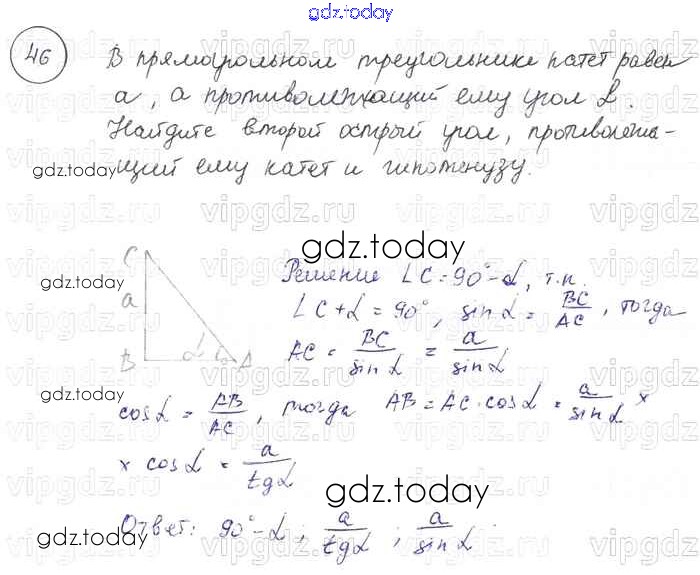 gdz.today
46
В прямоугольном треугольнике катет равен
a, а противолежащий ему угол α.
Найдите второй острый угол, противолежа-
щий ему катет и гипотенузу.
gdz.today
gdz.today
gdz.today
C
a
B
α
A
Решение ∠C = 90° - α, т.к.
∠C + α = 90°, sin α = BC/AC, тогда
AC = BC/sin α = a/sin α
cos α = AB/AC, тогда AB = AC · cos α = a/sin α ×
× cos α = a/tg α
gdz.today
gdz.today
Ответ: 90° - α; a/tg α; a/sin α.
gdz.today
vipgdz.ru